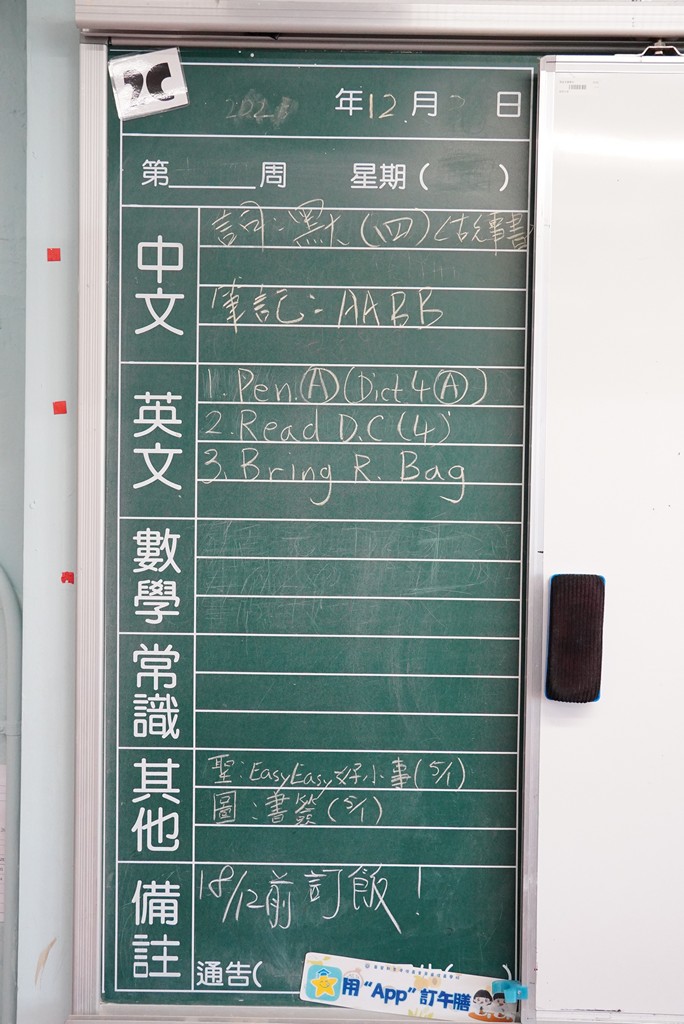 2C
年12月 日
第 周 星期( )
中文
詞:默(四)
筆記:AABB
英文
1. Pen.Ⓐ(Dict 4Ⓐ)
2. Read D.C (4)
3. Bring R. Bag
數學
常識
其他
聖:EasyEasy好小事(5/1)
圖:書簽(5/1)
備註
18/12前訂飯!
通告(
用“App”訂午膳